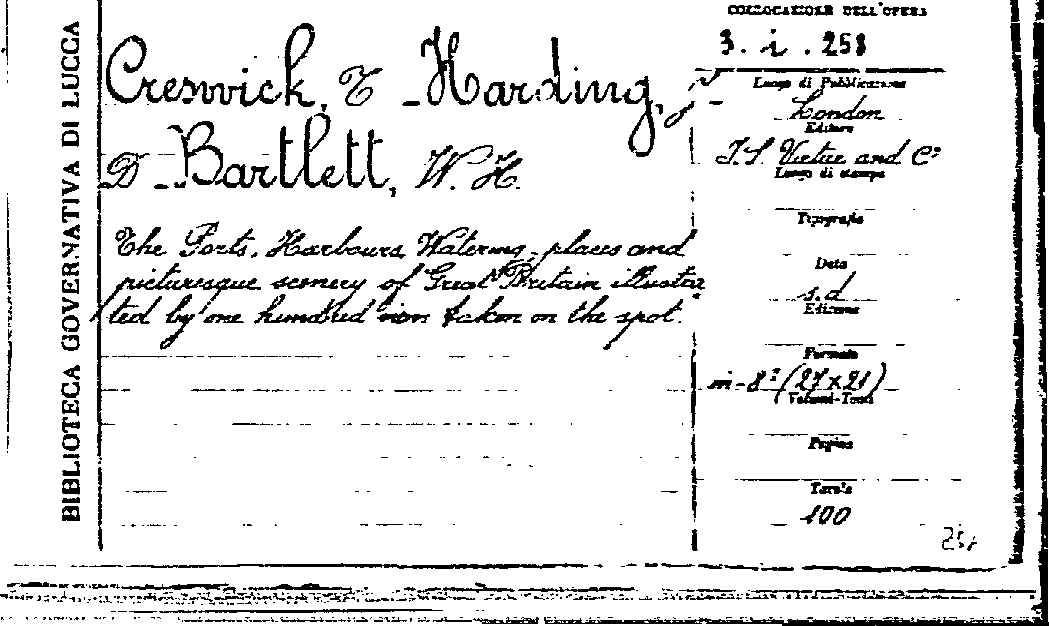 BIBLIOTECA GOVERNATIVA DI LUCCA
Creswick, T - Harding, J
D - Bartlett, W. H.
The Ports, Harbours, Watering-places and
picturesque scenery of Great Britain illustra
ted by one hundred taken on the spot.
COLLOCAZIONE DELL'OPERA
3. i. 258
Luogo di Pubblicazione
London
Editore
J. S. Virtue and Cº
Luogo di stampa
Tipografia
Data
s.d
Edizione
Formato
in-8º (27x21)
Volumi-Tomi
Pagine
Tavole
100